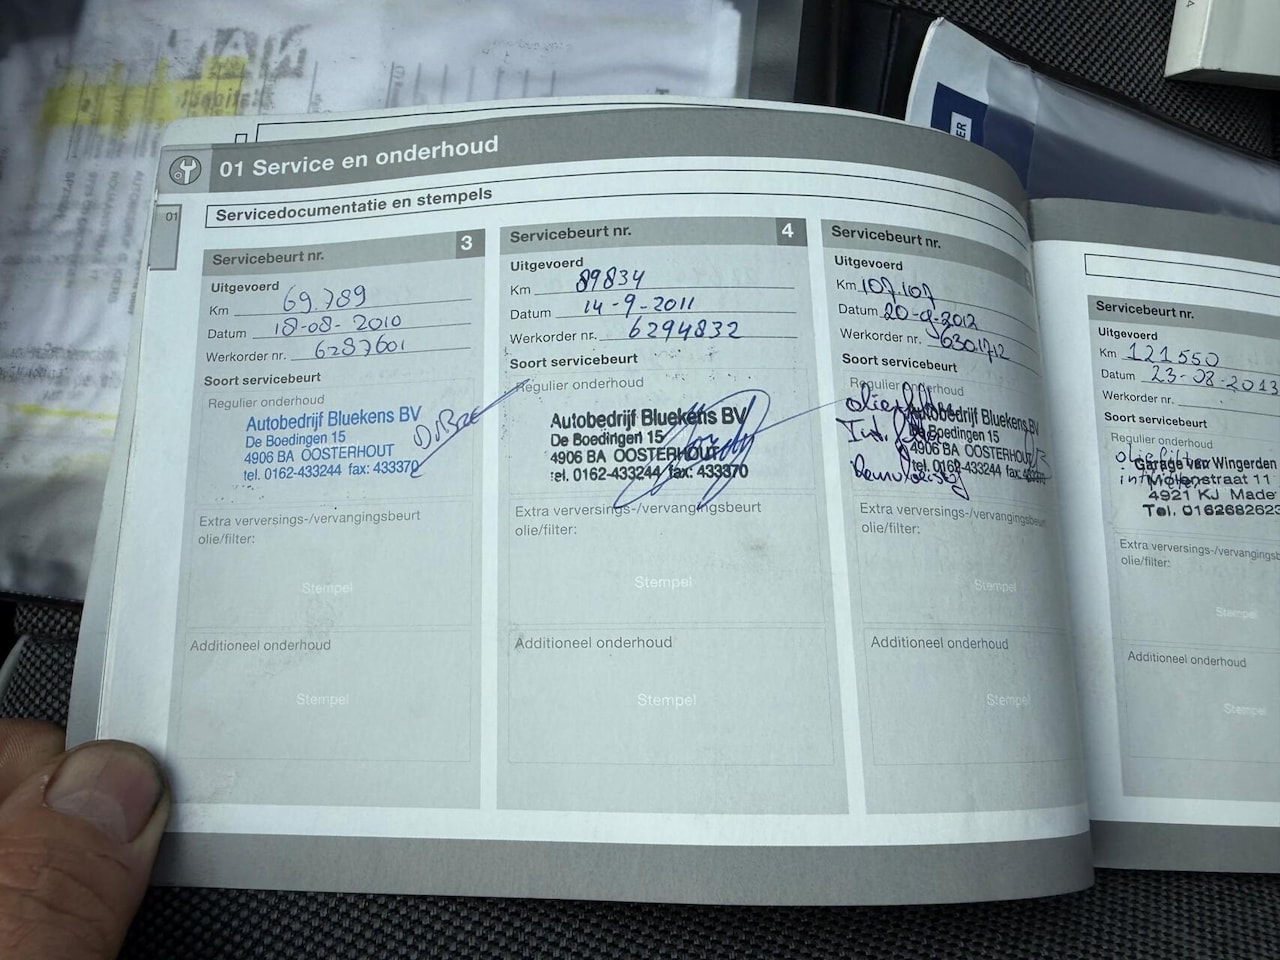 01 Service en onderhoud
01
Servicedocumentatie en stempels
Servicebeurt nr. 3
Uitgevoerd
Km 69.789
Datum 18-08-2010
Werkorder nr. 6287601
Soort servicebeurt
Regulier onderhoud
Autobedrijf Bluekens BV
De Boedingen 15
4906 BA OOSTERHOUT
tel. 0162-433244 fax: 433370
Extra verversings-/vervangingsbeurt
olie/filter:
Stempel
Additioneel onderhoud
Stempel
Servicebeurt nr. 4
Uitgevoerd
Km 89834
Datum 14-9-2011
Werkorder nr. 6294832
Soort servicebeurt
Regulier onderhoud
Autobedrijf Bluekens BV
De Boedingen 15
4906 BA OOSTERHOUT
tel. 0162-433244 fax: 433370
Extra verversings-/vervangingsbeurt
olie/filter:
Stempel
Additioneel onderhoud
Stempel
Servicebeurt nr.
Uitgevoerd
Km 107.107
Datum 20-9-2012
Werkorder nr. 6301712
Soort servicebeurt
Regulier onderhoud
Autobedrijf Bluekens BV
De Boedingen 15
4906 BA OOSTERHOUT
tel. 0162-433244 fax: 433370
Extra verversings-/vervangingsbeurt
olie/filter:
Stempel
Additioneel onderhoud
Stempel
Servicebeurt nr.
Uitgevoerd
Km 121550
Datum 23-08-2013
Werkorder nr.
Soort servicebeurt
Regulier onderhoud
oliefilter
Garage van Wingerden
Molenstraat 11
4921 KJ Made
Tel. 0162682623
Extra verversings-/vervangingsb
olie/filter:
Stempel
Additioneel onderhoud
Stempel